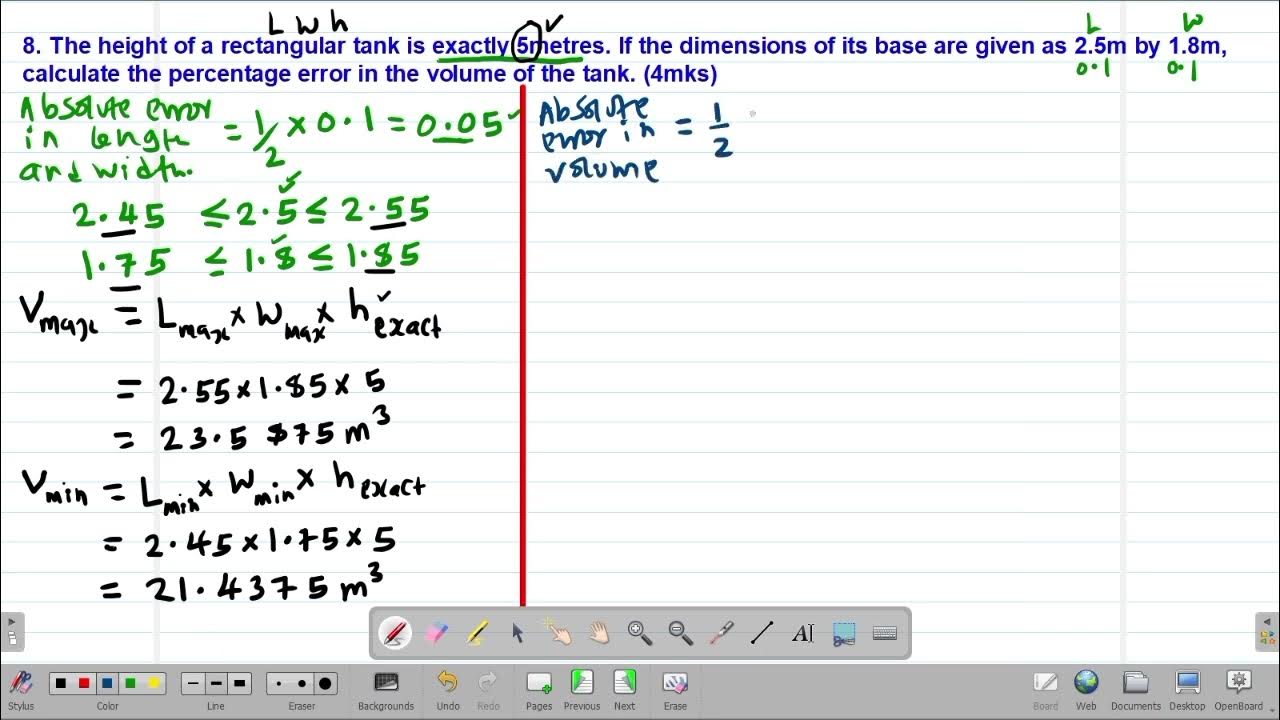 L W h
L W
8. The height of a rectangular tank is exactly 5metres. If the dimensions of its base are given as 2.5m by 1.8m,
0.1 0.1
calculate the percentage error in the volume of the tank. (4mks)
Absolute error
in length
and width.
= 1/2 × 0.1 = 0.05
2.45 ≤ 2.5 ≤ 2.55
1.75 ≤ 1.8 ≤ 1.85
Vmax = Lmax × Wmax × hexact
= 2.55 × 1.85 × 5
= 23.5875 m³
Vmin = Lmin × Wmin × hexact
= 2.45 × 1.75 × 5
= 21.4375 m³
Absolute
error in
volume
= 1/2
AI
Stylus Color Line Eraser Backgrounds Undo Redo Pages Previous Next Erase Board Web Documents Desktop OpenBoard